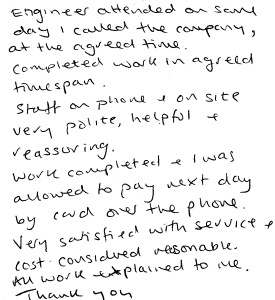 Engineer attended on same
day I called the company,
at the agreed time.
Completed work in agreed
timespan.
Staff on phone + on site
very polite, helpful +
reassuring.
Work completed + I was
allowed to pay next day
by card over the phone.
Very satisfied with service +
cost considered reasonable.
All work explained to me.
Thank you